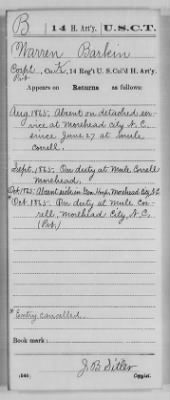 B | 14 H. Art'y. | U.S.C.T.
Warren Barkin
Corpl, Co. K, 14 Reg't U. S. Col'd H. Art'y.
Pvt
Appears on
Returns as follows:
Aug. 1865. Absent on detached ser-
vice at Morehead city N.C.
since June 27 at mule
Correll.
Sept. 1865. On duty at Mule Correll
Morehead.
Oct. 1865: Absent sick in Gen. Hosp., Morehead City N.C.
*Oct. 1865. On duty at Mule Cor-
rell, Morehead City, N.C.
(Pvt.)
*Entry cancelled.
Book mark:
J B Sitler
(546) Copyist.